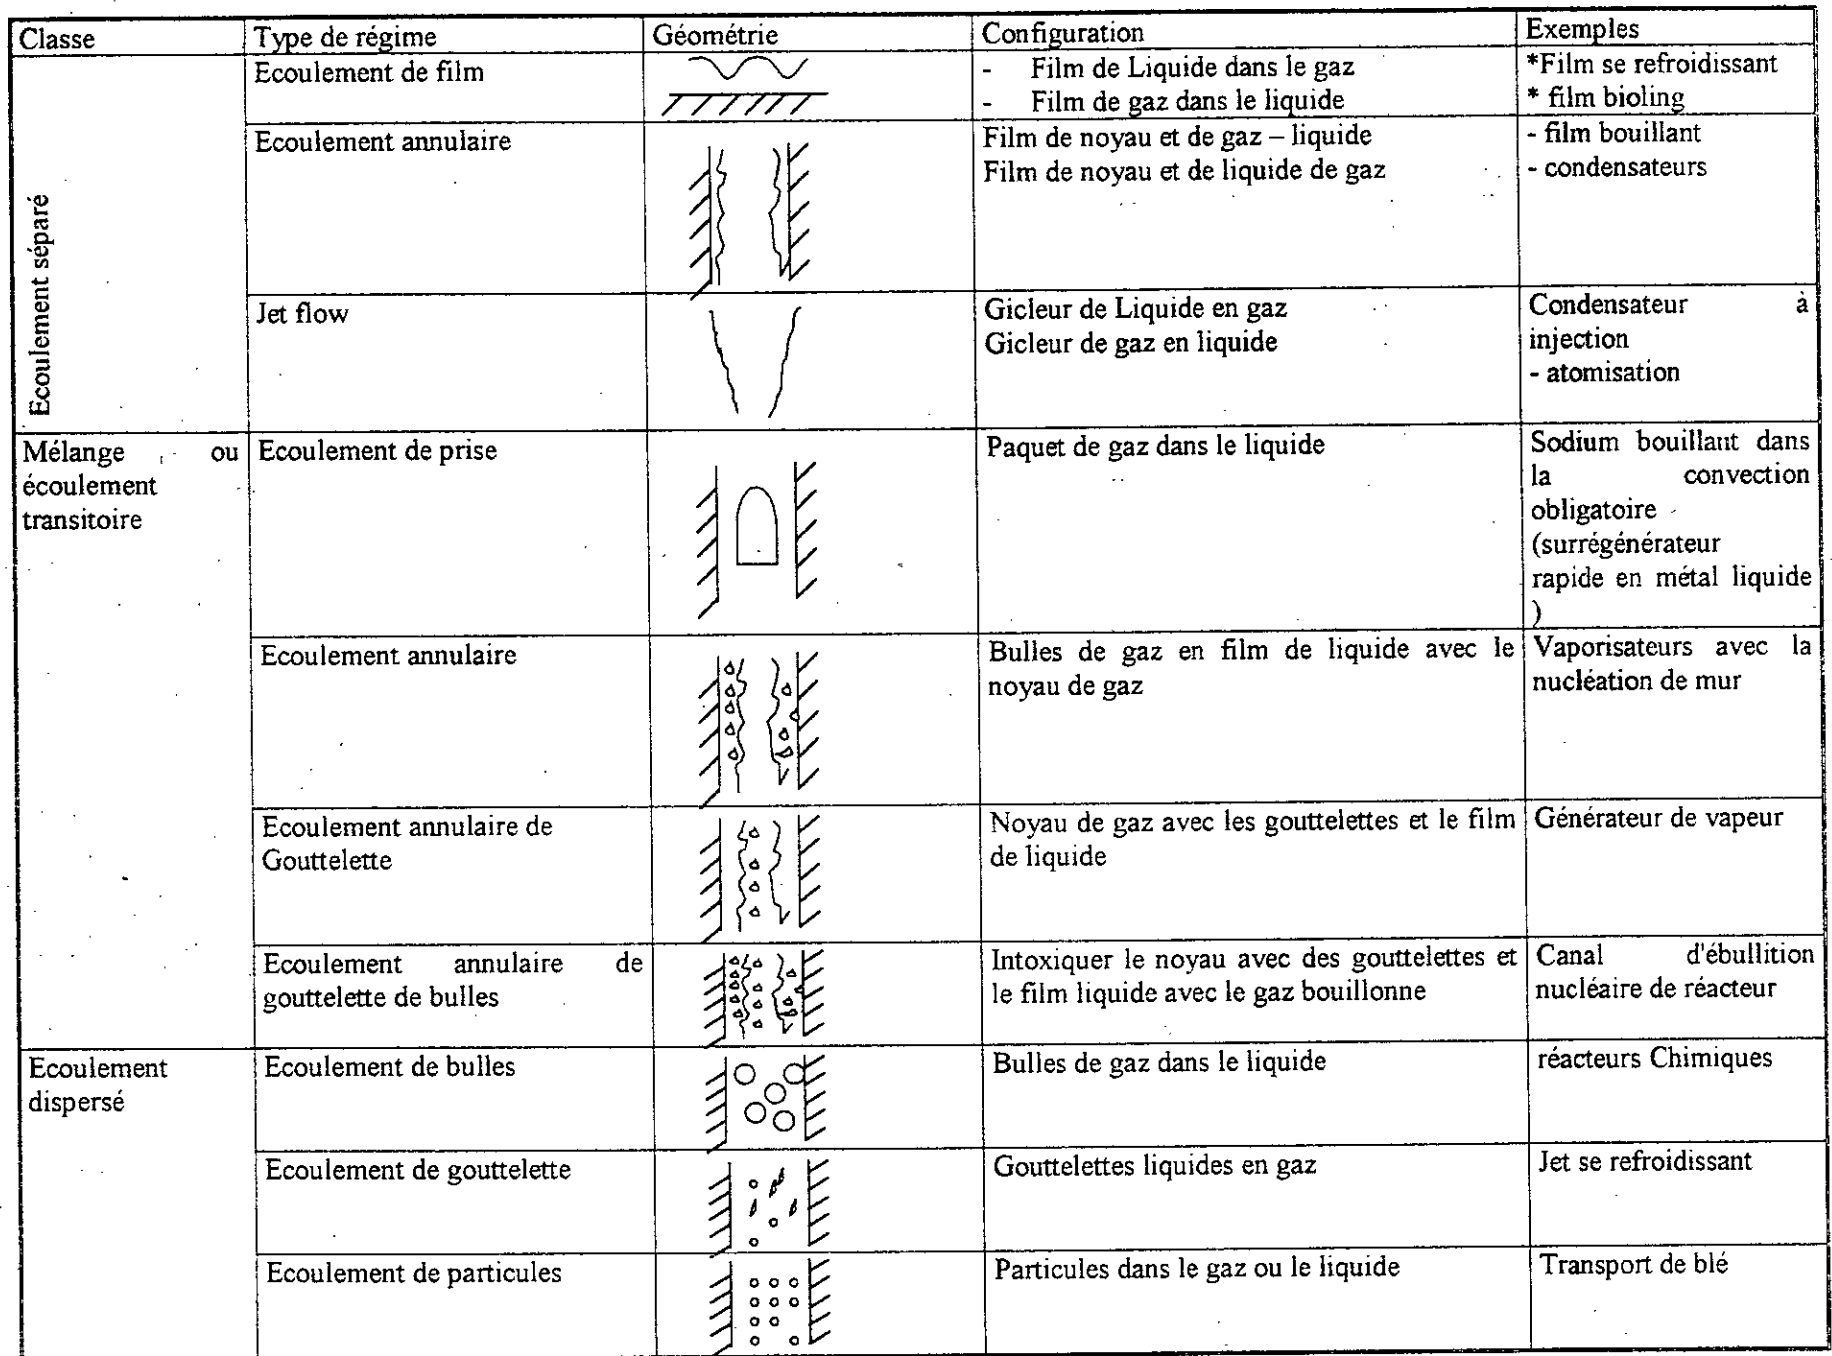 Classe
Type de régime
Géométrie
Configuration
Exemples
Ecoulement séparé
Ecoulement de film
- Film de Liquide dans le gaz
- Film de gaz dans le liquide
*Film se refroidissant
* film bioling
Ecoulement annulaire
Film de noyau et de gaz – liquide
Film de noyau et de liquide de gaz
- film bouillant
- condensateurs
Jet flow
Gicleur de Liquide en gaz
Gicleur de gaz en liquide
Condensateur à
injection
- atomisation
Mélange ou
écoulement
transitoire
Ecoulement de prise
Paquet de gaz dans le liquide
Sodium bouillant dans
la convection
obligatoire
(surrégénérateur
rapide en métal liquide
)
Ecoulement annulaire
Bulles de gaz en film de liquide avec le
noyau de gaz
Vaporisateurs avec la
nucléation de mur
Ecoulement annulaire de
Gouttelette
Noyau de gaz avec les gouttelettes et le film
de liquide
Générateur de vapeur
Ecoulement annulaire de
gouttelette de bulles
Intoxiquer le noyau avec des gouttelettes et
le film liquide avec le gaz bouillonne
Canal d'ébullition
nucléaire de réacteur
Ecoulement
dispersé
Ecoulement de bulles
Bulles de gaz dans le liquide
réacteurs Chimiques
Ecoulement de gouttelette
Gouttelettes liquides en gaz
Jet se refroidissant
Ecoulement de particules
Particules dans le gaz ou le liquide
Transport de blé